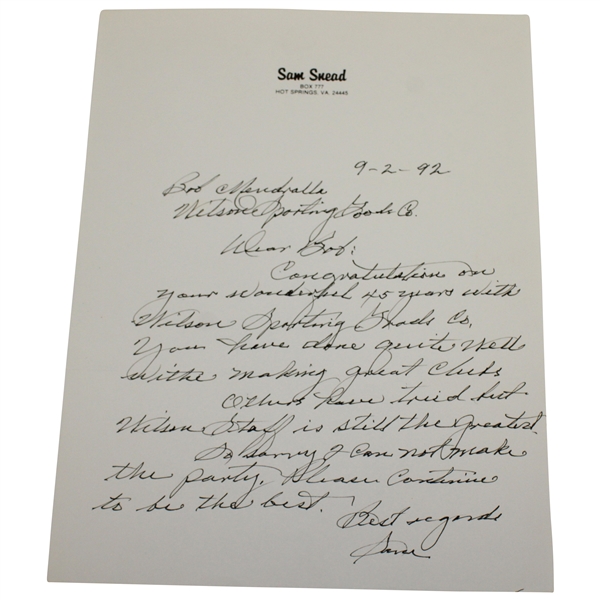 Sam Snead
BOX 777
HOT SPRINGS, VA. 24445
9-2-92
Bob Mendralla
Wilson Sporting Goods Co.
Dear Bob:
Congratulation on
your wonderful 45 years with
Wilson Sporting Goods Co.
You have done quite well
withe making great Clubs
Others have tried but
Wilson Staff is still the greatest.
So sorry I can not make
the party. Please Continue
to be the best.
Best regards
Sam